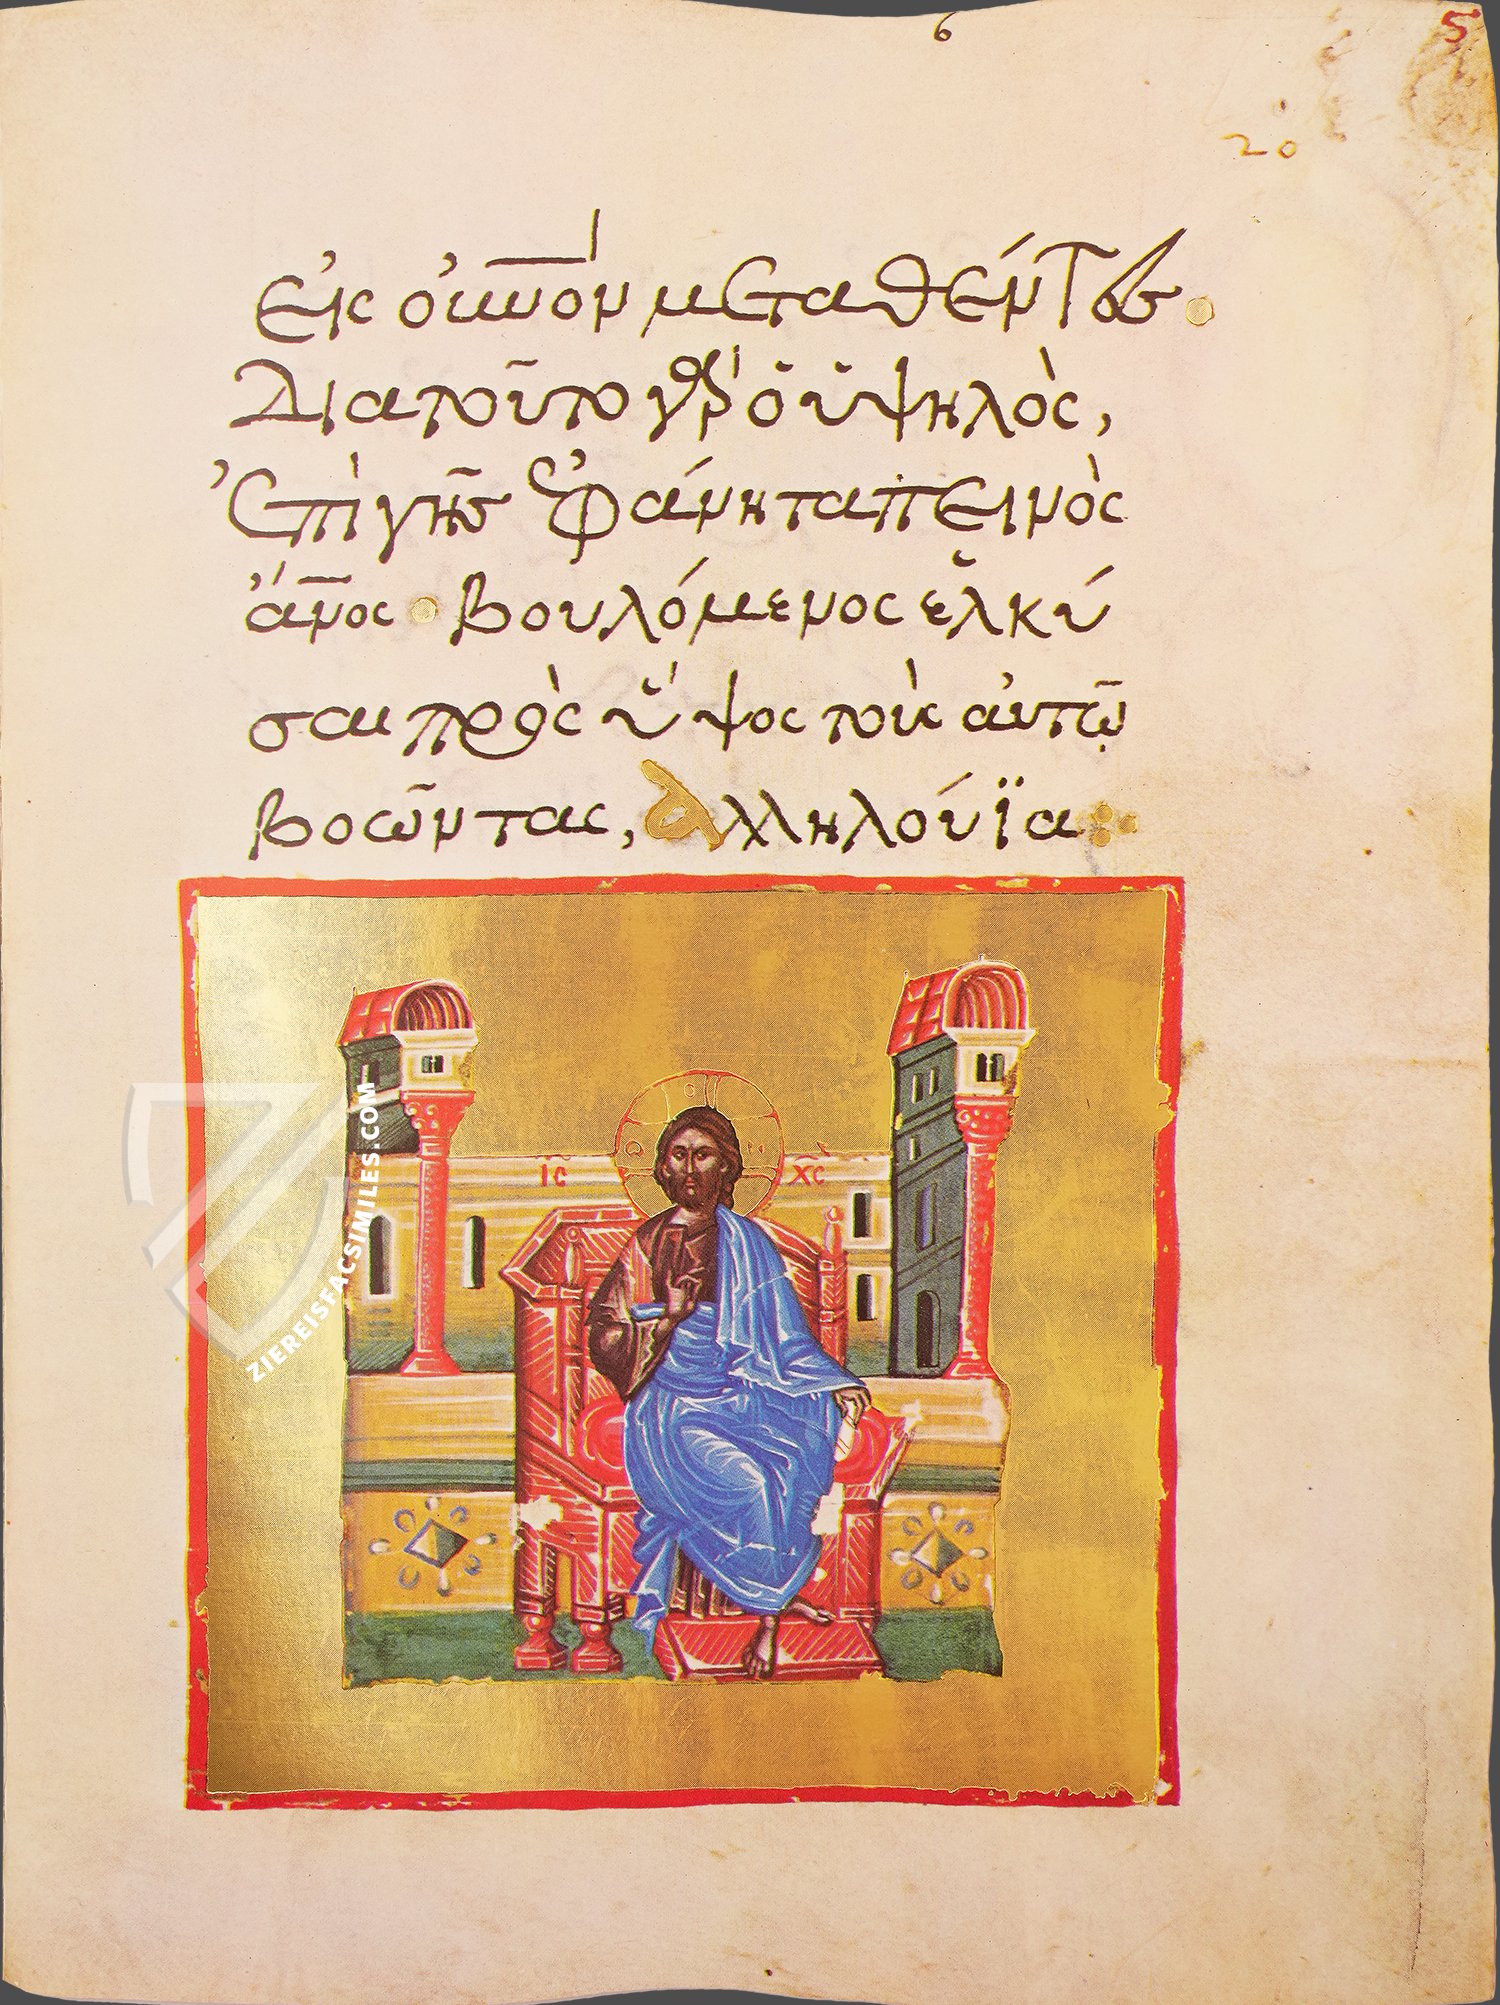 6
5
20
εἰς οὐ̅ν̅ο̅ν μεταθέντες·
Διατοῦτο γὰρ ὁ ὑψηλὸς,
ἐπὶ γῆς ἐφάνη ταπεινὸς
ἄν̅ο̅ς· Βουλόμενος ἑλκύ
σαι πρὸς ὕψος τοὺς αὐτῷ
βοῶντας, ἀλληλούϊα:
ΙϹ ΧϹ
Ο Ω Ν
ZIEREISFACSIMILES.COM